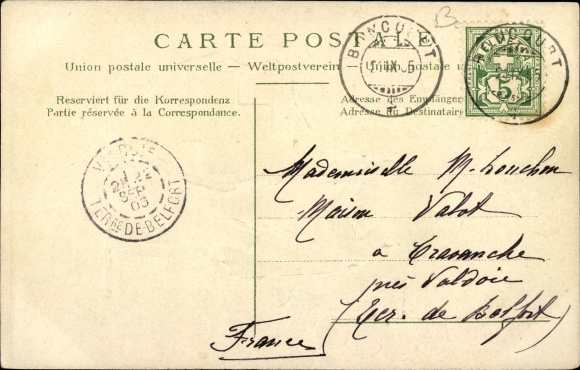 B
CARTE POSTALE
Union postale universelle – Weltpostverein – Union postale
BONCOURT
IX. 05
BONCOURT
5
Reserviert für die Korrespondenz
Partie réservée à la Correspondance.
Adresse des Empfängers
Adresse du Destinataire
VALDOIE
22
SEPT
05
TERRRE DE BELFORT
Mademoiselle M.
Maison Valot
à Cravanche
près Valdoie
(Ter. de Belfort)
France